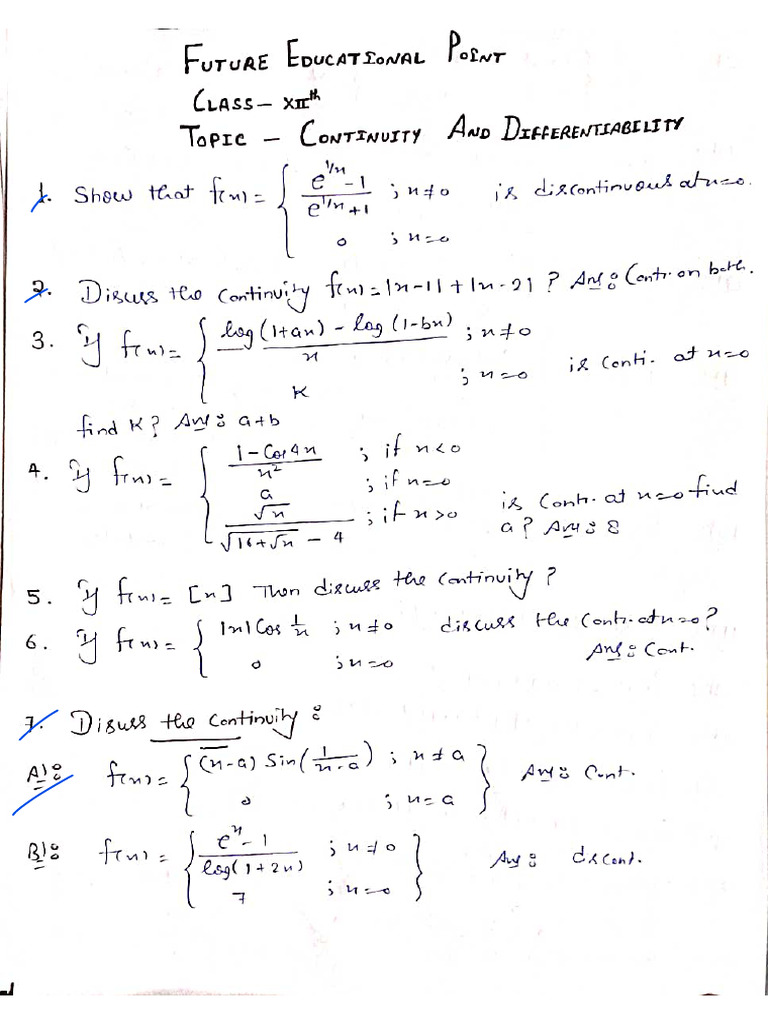 FUTURE EDUCATIONAL POINT
CLASS – XIIth
TOPIC – CONTINUITY AND DIFFERENTIABILITY
1. Show that f(x) = { (e^{1/x} - 1)/(e^{1/x} + 1) ; x≠0 is discontinuous at x=0.
0 ; x=0
2. Discuss the continuity f(x) = |x-1| + |x-2| ? Ans: Conti. on both.
3. If f(x) = { (log(1+ax) - log(1-bx))/x ; x≠0
K ; x=0 is conti. at x=0
find K? Ans: a+b
4. If f(x) = { (1-Cos4x)/x² ; if x<0
a ; if x=0
√x/(√(16+√x) - 4) ; if x>0 is conti. at x=0 find
a? Ans: 8
5. If f(x) = [x] Then discuss the continuity?
6. If f(x) = { |x| Cos 1/x ; x≠0 discuss the conti. at x=0?
0 ; x=0 Ans: Cont.
7. Disuss the continuity:
A): f(x) = { (x-a) Sin(1/(x-a)) ; x≠a } Ans: Cont.
0 ; x=a
B): f(x) = { (e^x - 1)/log(1+2x) ; x≠0 } Ans: discont.
7 ; x=0